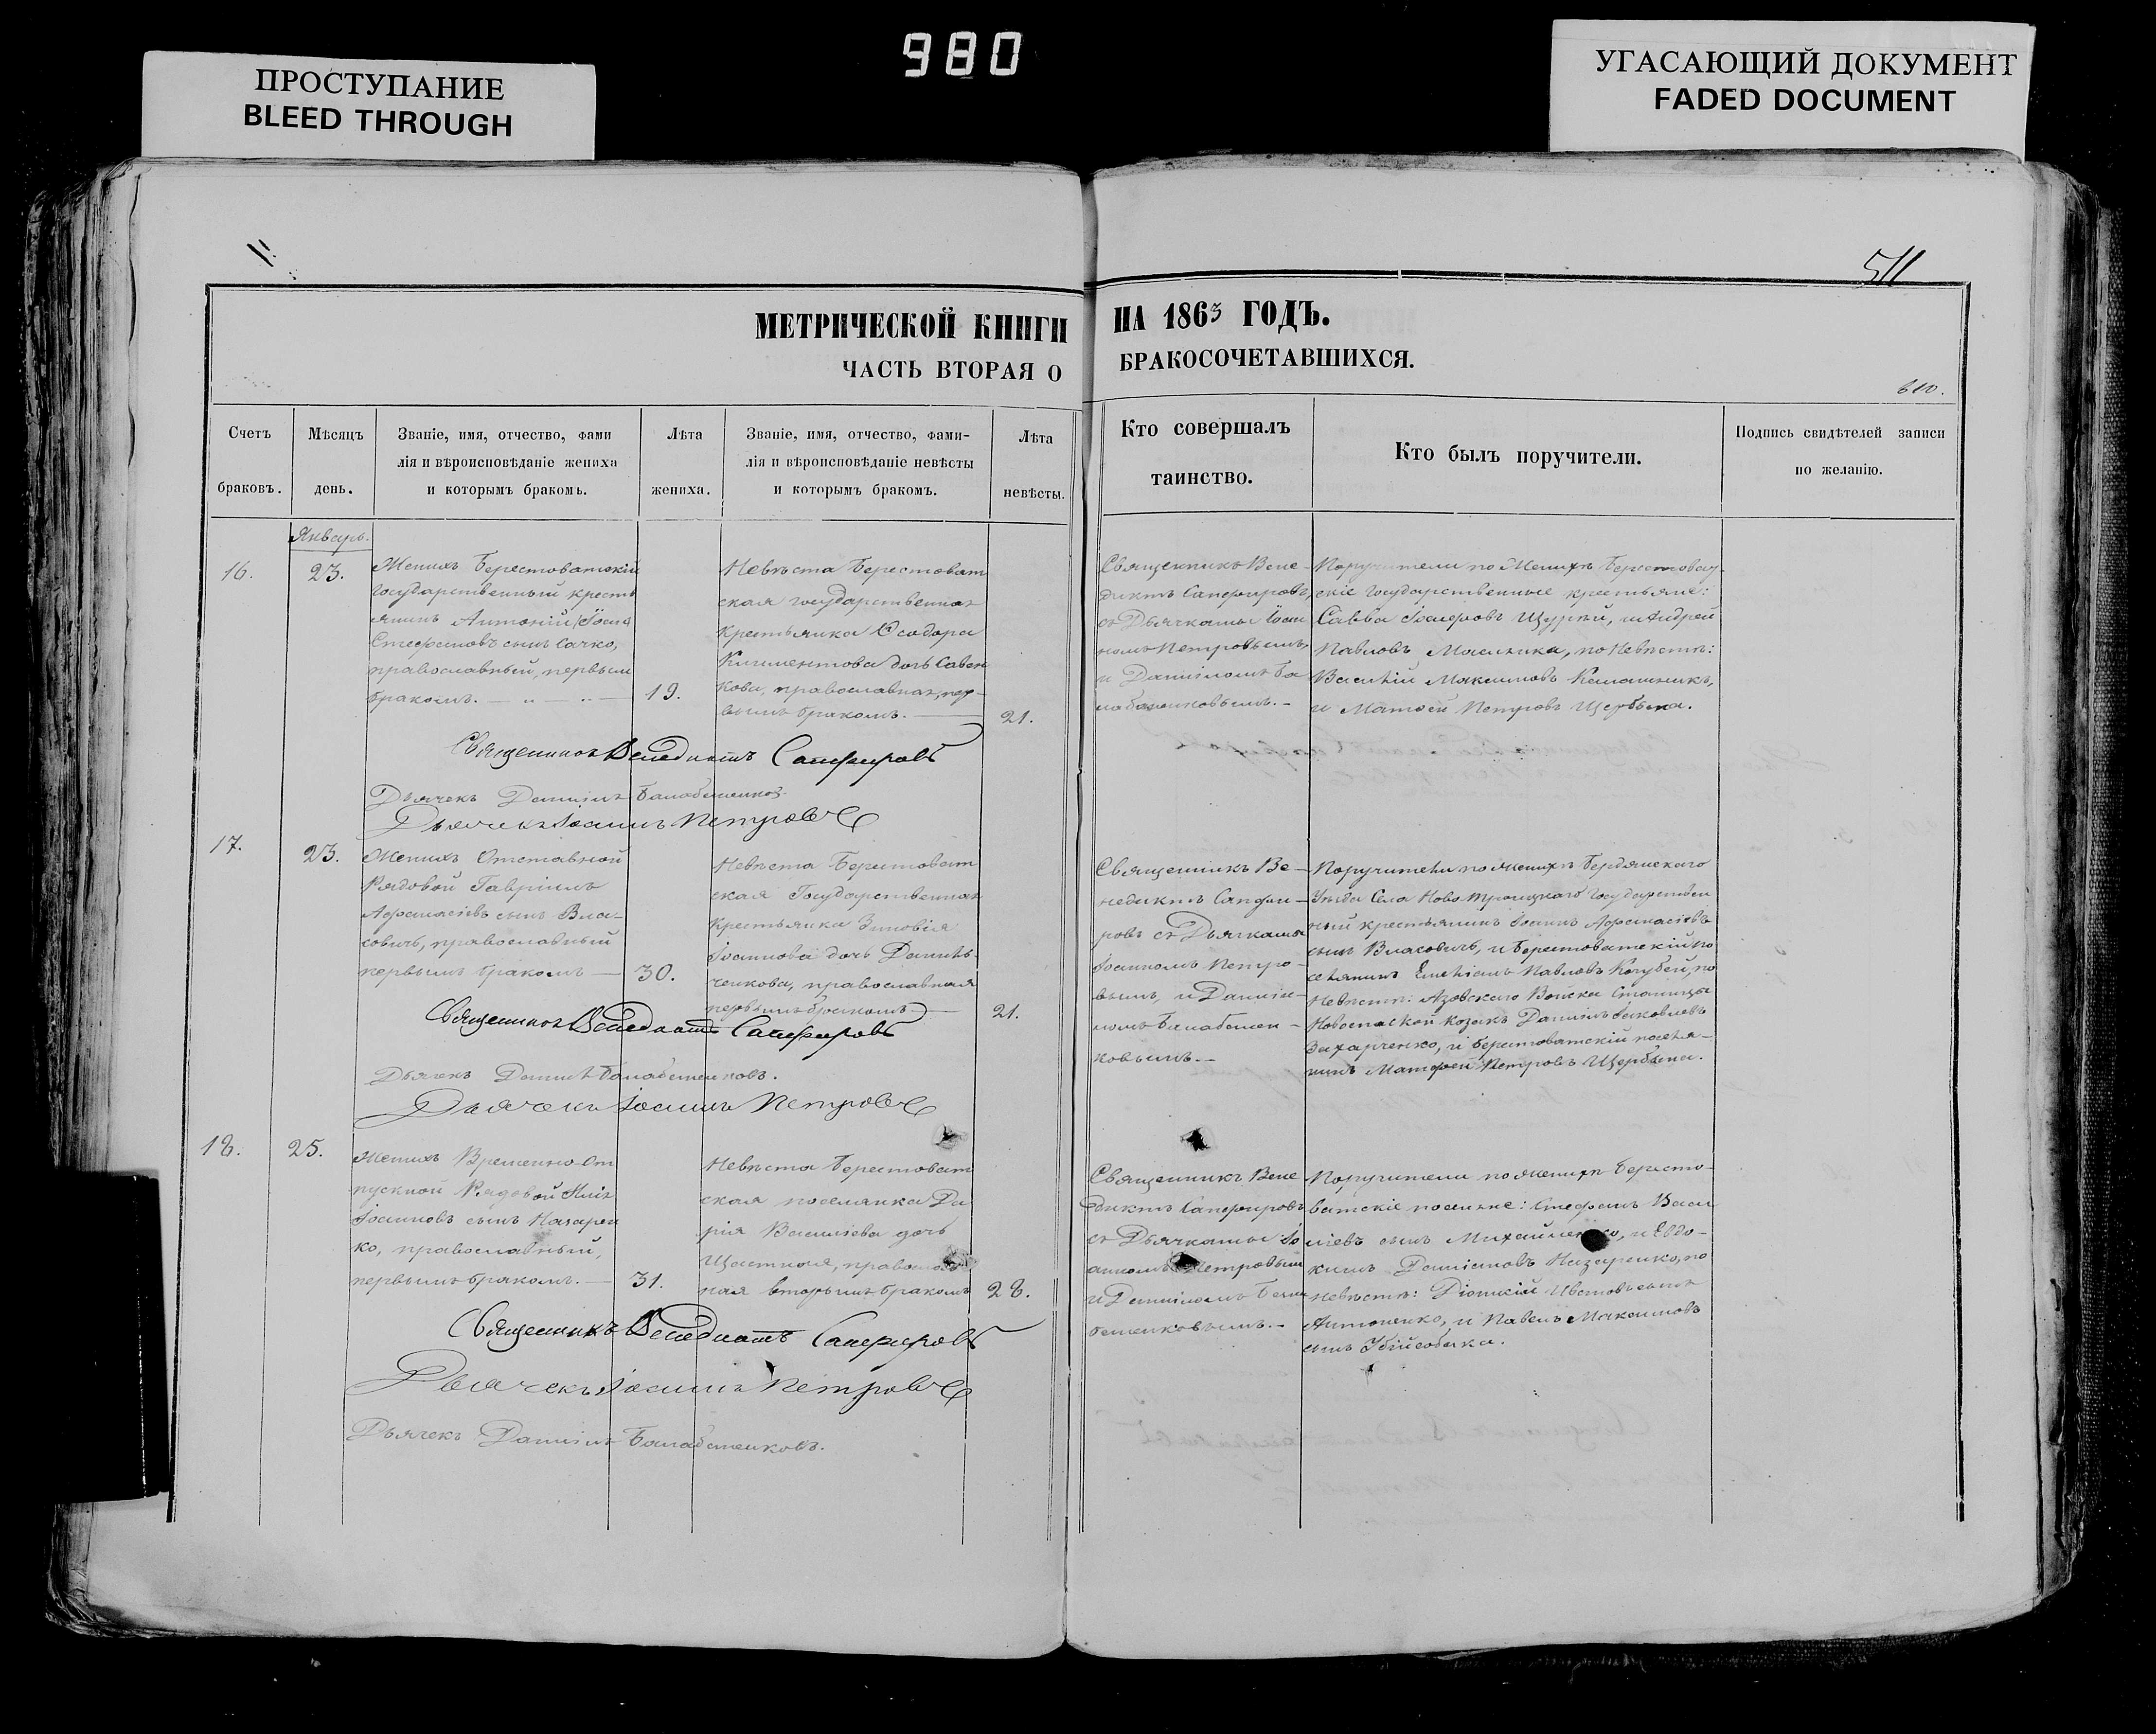 980
ПРОСТУПАНИЕ
BLEED THROUGH
УГАСАЮЩИЙ ДОКУМЕНТ
FADED DOCUMENT
511
МЕТРИЧЕСКОЙ КНИГИ
НА 1863 ГОДЪ.
ЧАСТЬ ВТОРАЯ О
БРАКОСОЧЕТАВШИХСЯ.
Счетъ
браковъ.
Мѣсяцъ
день.
Званіе, имя, отчество, фами
лія и вѣроисповѣданіе жениха
и которымъ бракомъ.
Лѣта
жениха.
Званіе, имя, отчество, фами-
лія и вѣроисповѣданіе невѣсты
и которымъ бракомъ.
Лѣта
невѣсты.
Кто совершалъ
таинство.
Кто былъ поручители.
Подпись свидѣтелей записи
по желанію.
Январь.
16.
23.
Женихъ Берестоватскій
государственный кресть
янинъ Антоній
Стефановъ сынъ Сачко,
православный, первымъ
бракомъ.
19.
Невѣста Берестоват
ская государственная
крестьянка Ѳеодора
дочь Савен
кова, православная, пер-
вымъ бракомъ.
21.
Священникъ Вене-
диктъ Сапфировъ,
съ Дьячками Іоан
номъ Петровымъ,
и Даніиломъ Ба
лабашенковымъ.
Поручители по Женихѣ Берестоват
скіе государственные крестьяне:
Савва Іосифовъ и Андрей
Павловъ по Невѣстѣ:
Василій Максимовъ
и Матѳей Петровъ Щербина.
Священникъ Венедиктъ Сапфировъ
Дьячекъ Даніилъ
Дьячекъ Іоаннъ Петровъ
17.
23.
Женихъ Отставной
Рядовой Гавріилъ
Аѳанасіевъ сынъ Вла-
совичъ, православный
первымъ бракомъ
30.
Невѣста Берестоват
ская Государственная
Крестьянка Зиновія
Іоаннова дочь Данил
ченкова, православная
первымъ бракомъ
21.
Священникъ Ве-
недиктъ Сапфи-
ровъ съ Дьячками
Іоанномъ Петро-
вымъ, и Даніи-
ломъ
ковымъ.
Поручители по Женихѣ Бердянскаго
Уѣзда Села Ново Троицкаго Государствен
ный крестьянинъ Іоаннъ Аѳанасіевъ
сынъ Власовичъ, и Берестоватскій по
селянинъ Павловъ Кочубей, по
Невѣстѣ: Азовскаго Войска Станицы
Новоспаской козакъ Даніилъ Яковлевъ
Захарченко, и берестоватскій поселя-
нинъ Матфей Петровъ Щербина.
Священникъ Венедиктъ Сапфировъ
Дьячекъ Даніилъ
Дьячекъ Іоаннъ Петровъ
18.
25.
Женихъ Временно-От
пускной Рядовой
Іоанновъ сынъ Назарен
ко, православный,
первымъ бракомъ.
31.
Невѣста Берестоват
ская поселянка Да
рія Василіева дочь
православ
ная вторымъ бракомъ
28.
Священникъ Вене
диктъ Сапфировъ
съ Дьячками Іо
анномъ Петровым
и Даніиломъ
Поручители по Женихѣ Бересто-
ватскіе поселяне: Стефанъ Васи
ліевъ сынъ Михайленко, и Евдо-
кимъ Даміановъ Назаренко, по
невѣстѣ:
Антоненко, и Павелъ Максимовъ
сынъ Убійсобака.
Священникъ Венедиктъ Сапфировъ
Дьячекъ Іоаннъ Петровъ
Дьячекъ Даніилъ